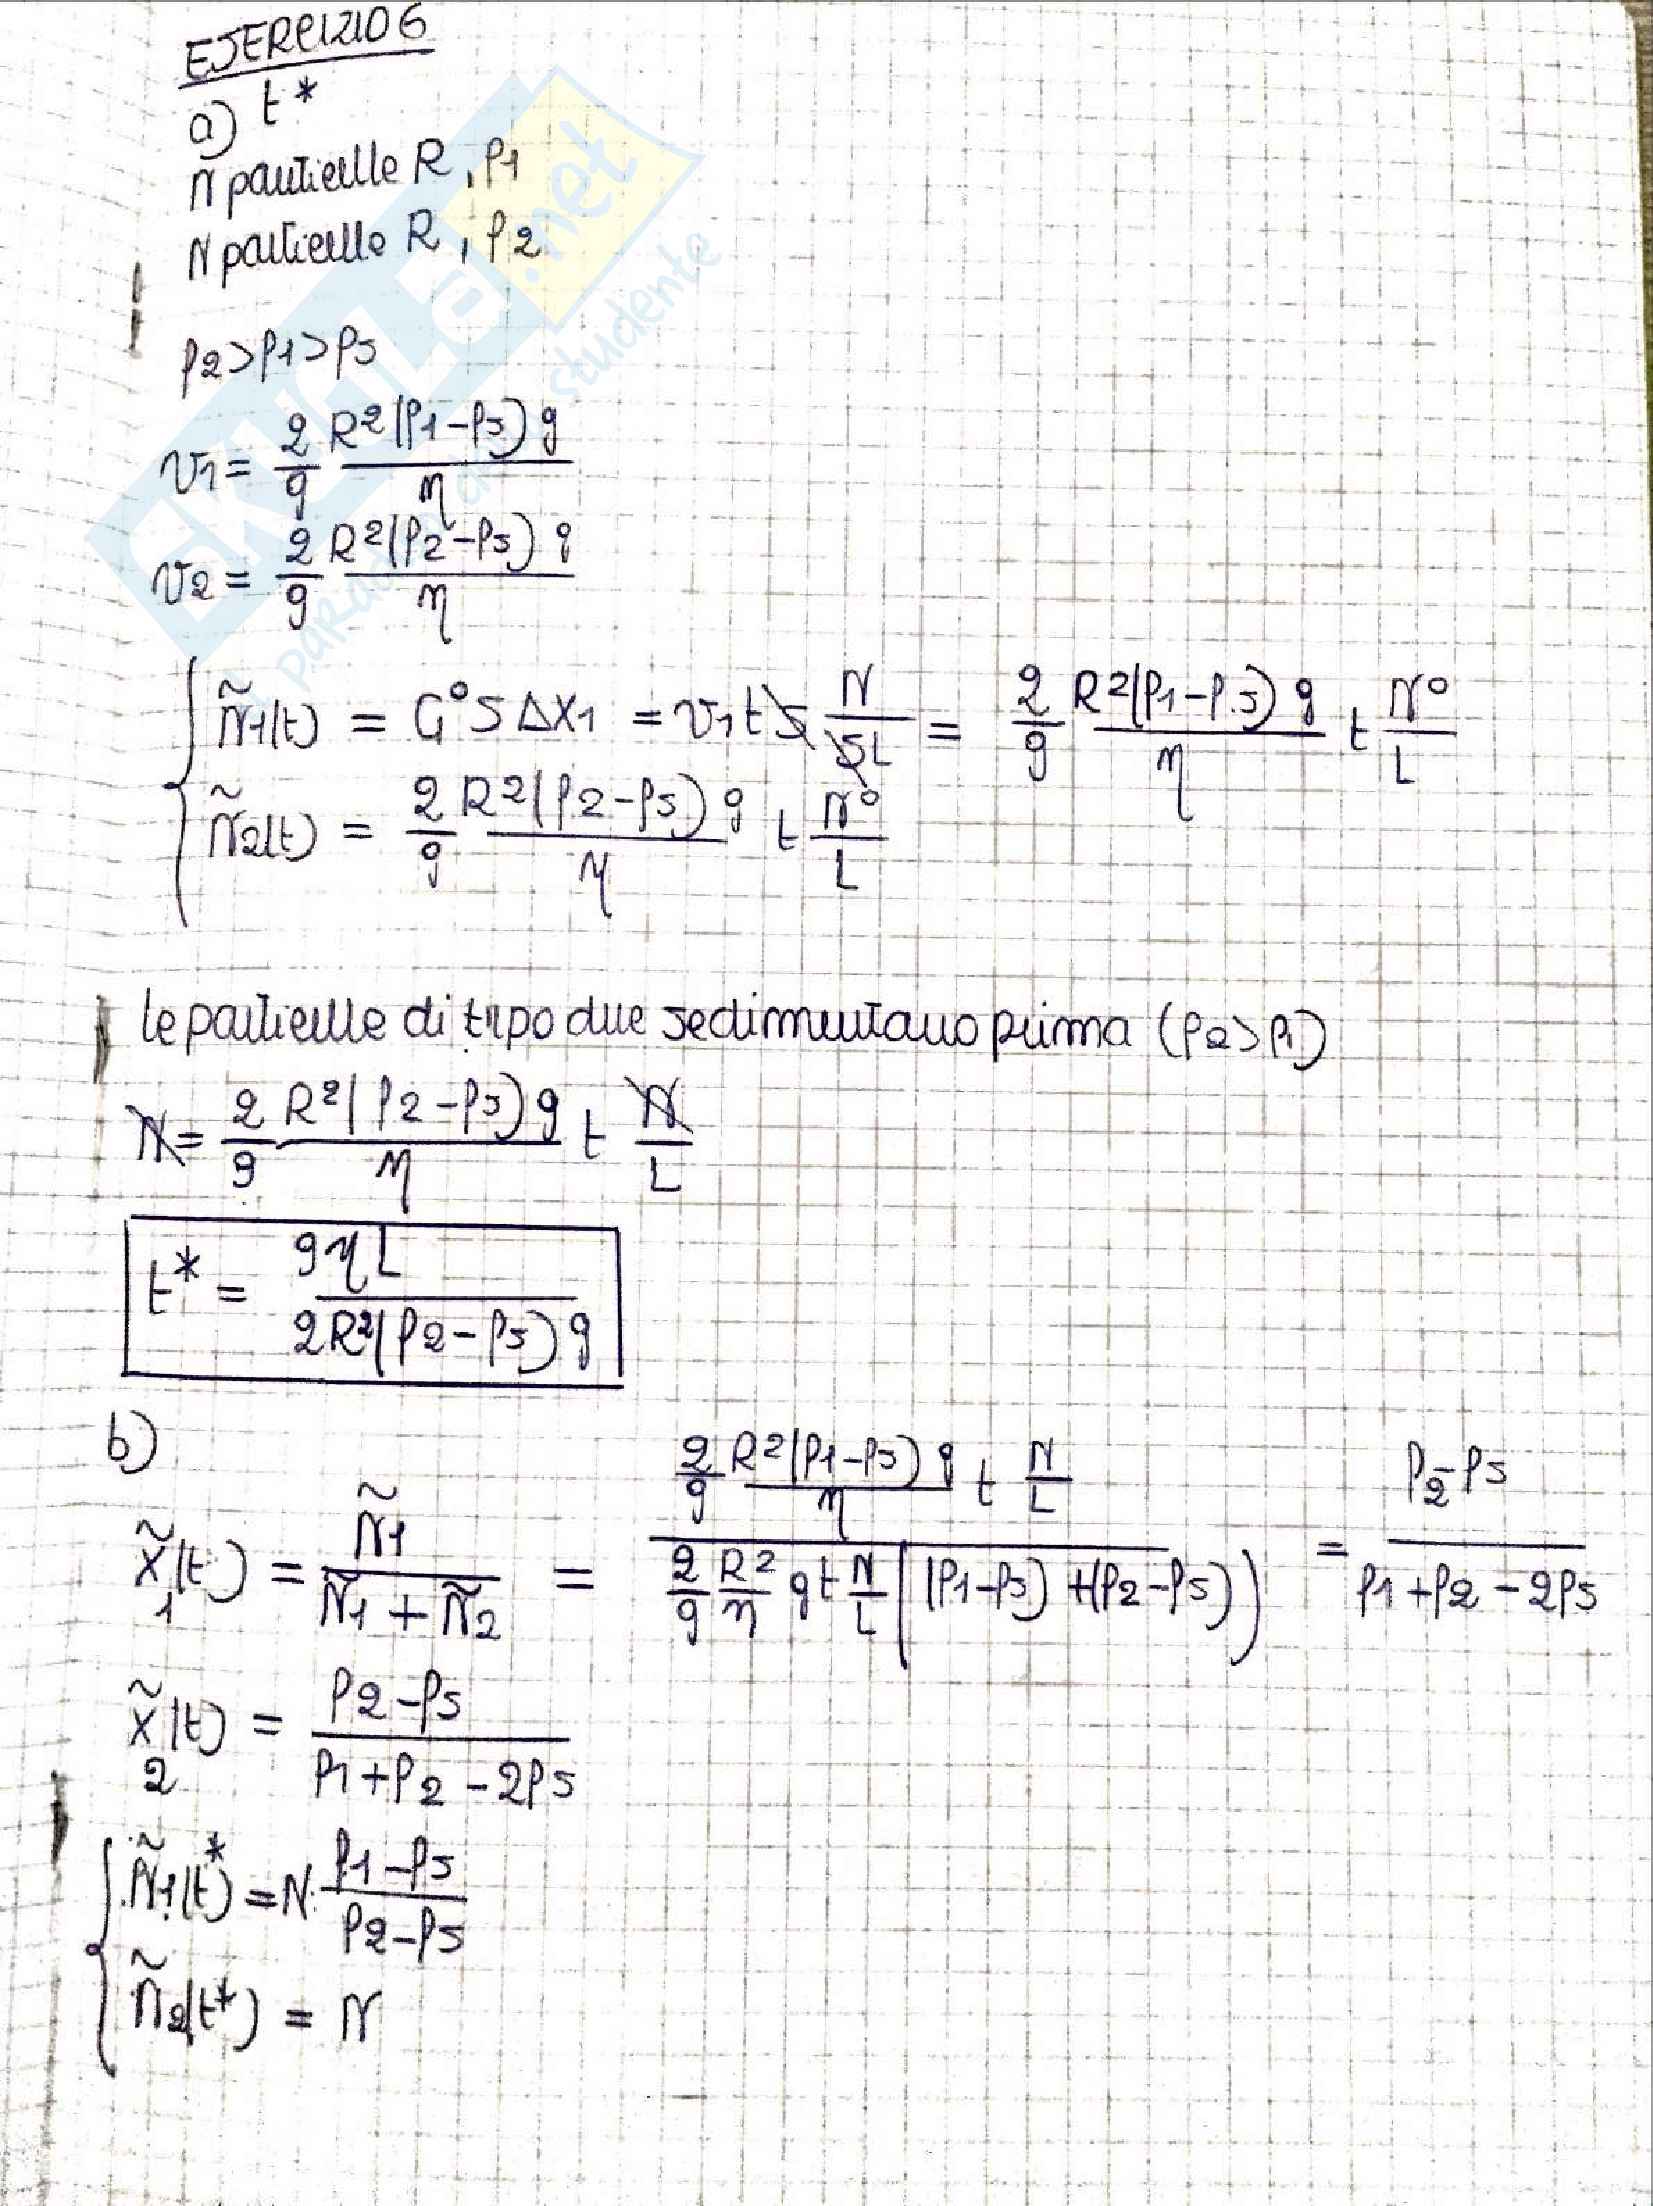 ESERCIZIO 6
a) t*
N particelle R, ρ1
N particelle R, ρ2
ρ2>ρ1>ρs
v1 = 2/9 R²(ρ1-ρs) g / η
v2 = 2/9 R²(ρ2-ρs) g / η
Ñ1(t) = C° S Δx1 = v1 t S N/SL = 2/9 R²(ρ1-ρs) g / η t N°/L
Ñ2(t) = 2/9 R²(ρ2-ρs) g / η t N°/L
le particelle di tipo due sedimentano prima (ρ2>ρ1)
N = 2/9 R²(ρ2-ρs) g / η t N/L
t* = 9ηL / 2R²(ρ2-ρs) g
b)
x̃1(t) = Ñ1 / Ñ1+Ñ2 = 2/9 R²(ρ1-ρs) g / η t N/L / 2/9 R²/η g t N/L ((ρ1-ρs)+(ρ2-ρs)) = ρ2-ρs / ρ1+ρ2-2ρs
x̃2(t) = ρ2-ρs / ρ1+ρ2-2ρs
Ñ1(t*) = N · ρ1-ρs / ρ2-ρs
Ñ2(t*) = N
SKUOLA.net